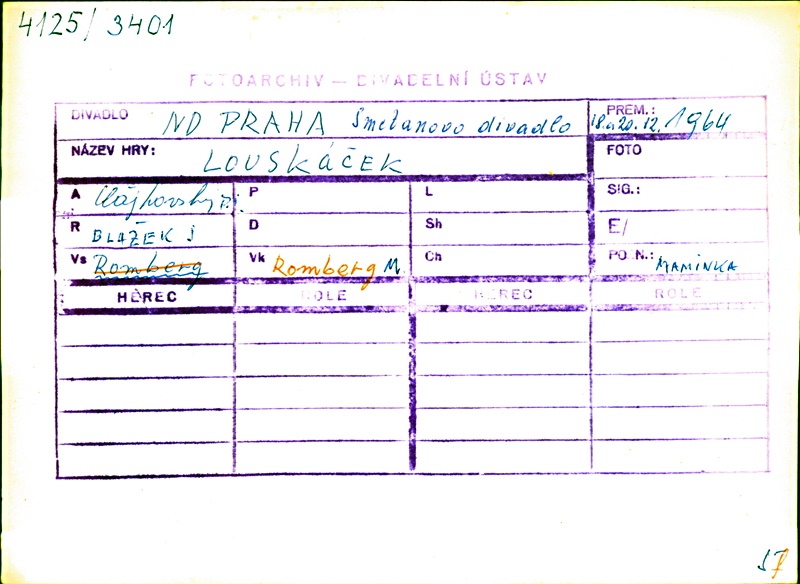 4125/3401
FOTOARCHIV — DIVADELNÍ ÚSTAV
DIVADLO ND PRAHA Smetanovo divadlo
PREM.: 18. a 20. 12. 1964
NÁZEV HRY: LOUSKÁČEK
FOTO
A P. P L SIG.:
R BLAŽEK J D Sh E/
Vs Romberg Vk Romberg M. Ch PO N.: MAMINKA
HEREC ROLE HEREC ROLE